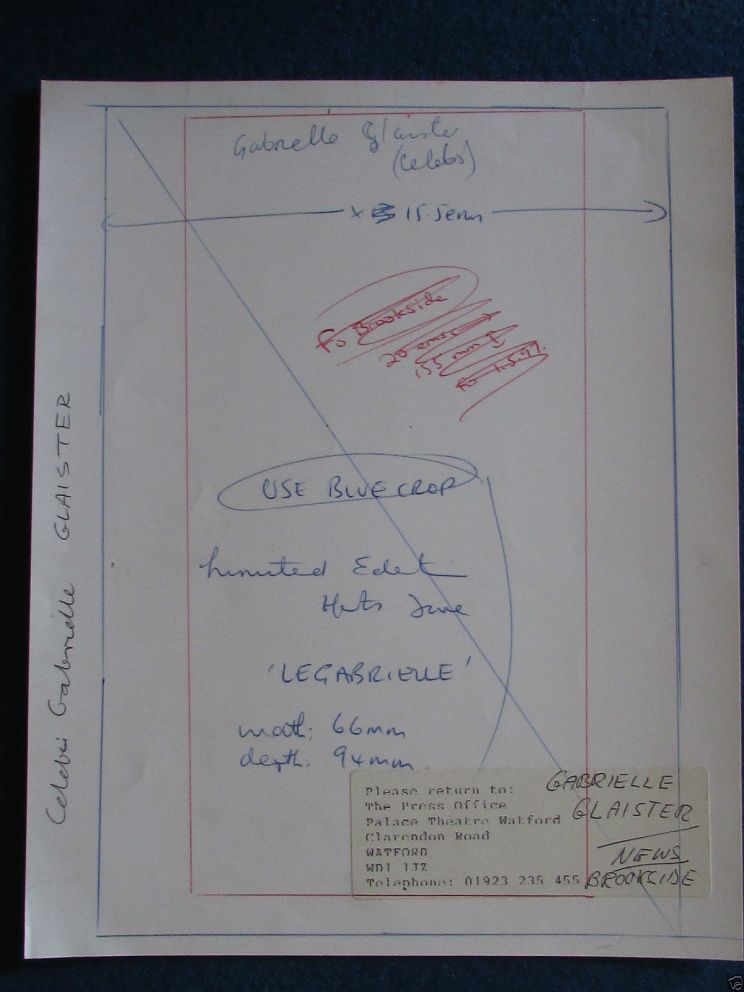 Gabrielle Glaister
(Celebs)
x 15.5cms
To Brookside
20 ems
155 mm
USE BLUE CROP
Limited Edet
Herts June
'LEGABRIELLE'
width: 66mm
depth: 94mm
Celebs Gabrielle GLAISTER
Please return to:
The Press Office
Palace Theatre Watford
Clarendon Road
WATFORD
WD1 1JZ
Telephone: 01923 235 455
GABRIELLE
GLAISTER
NEWS
BROOKSIDE